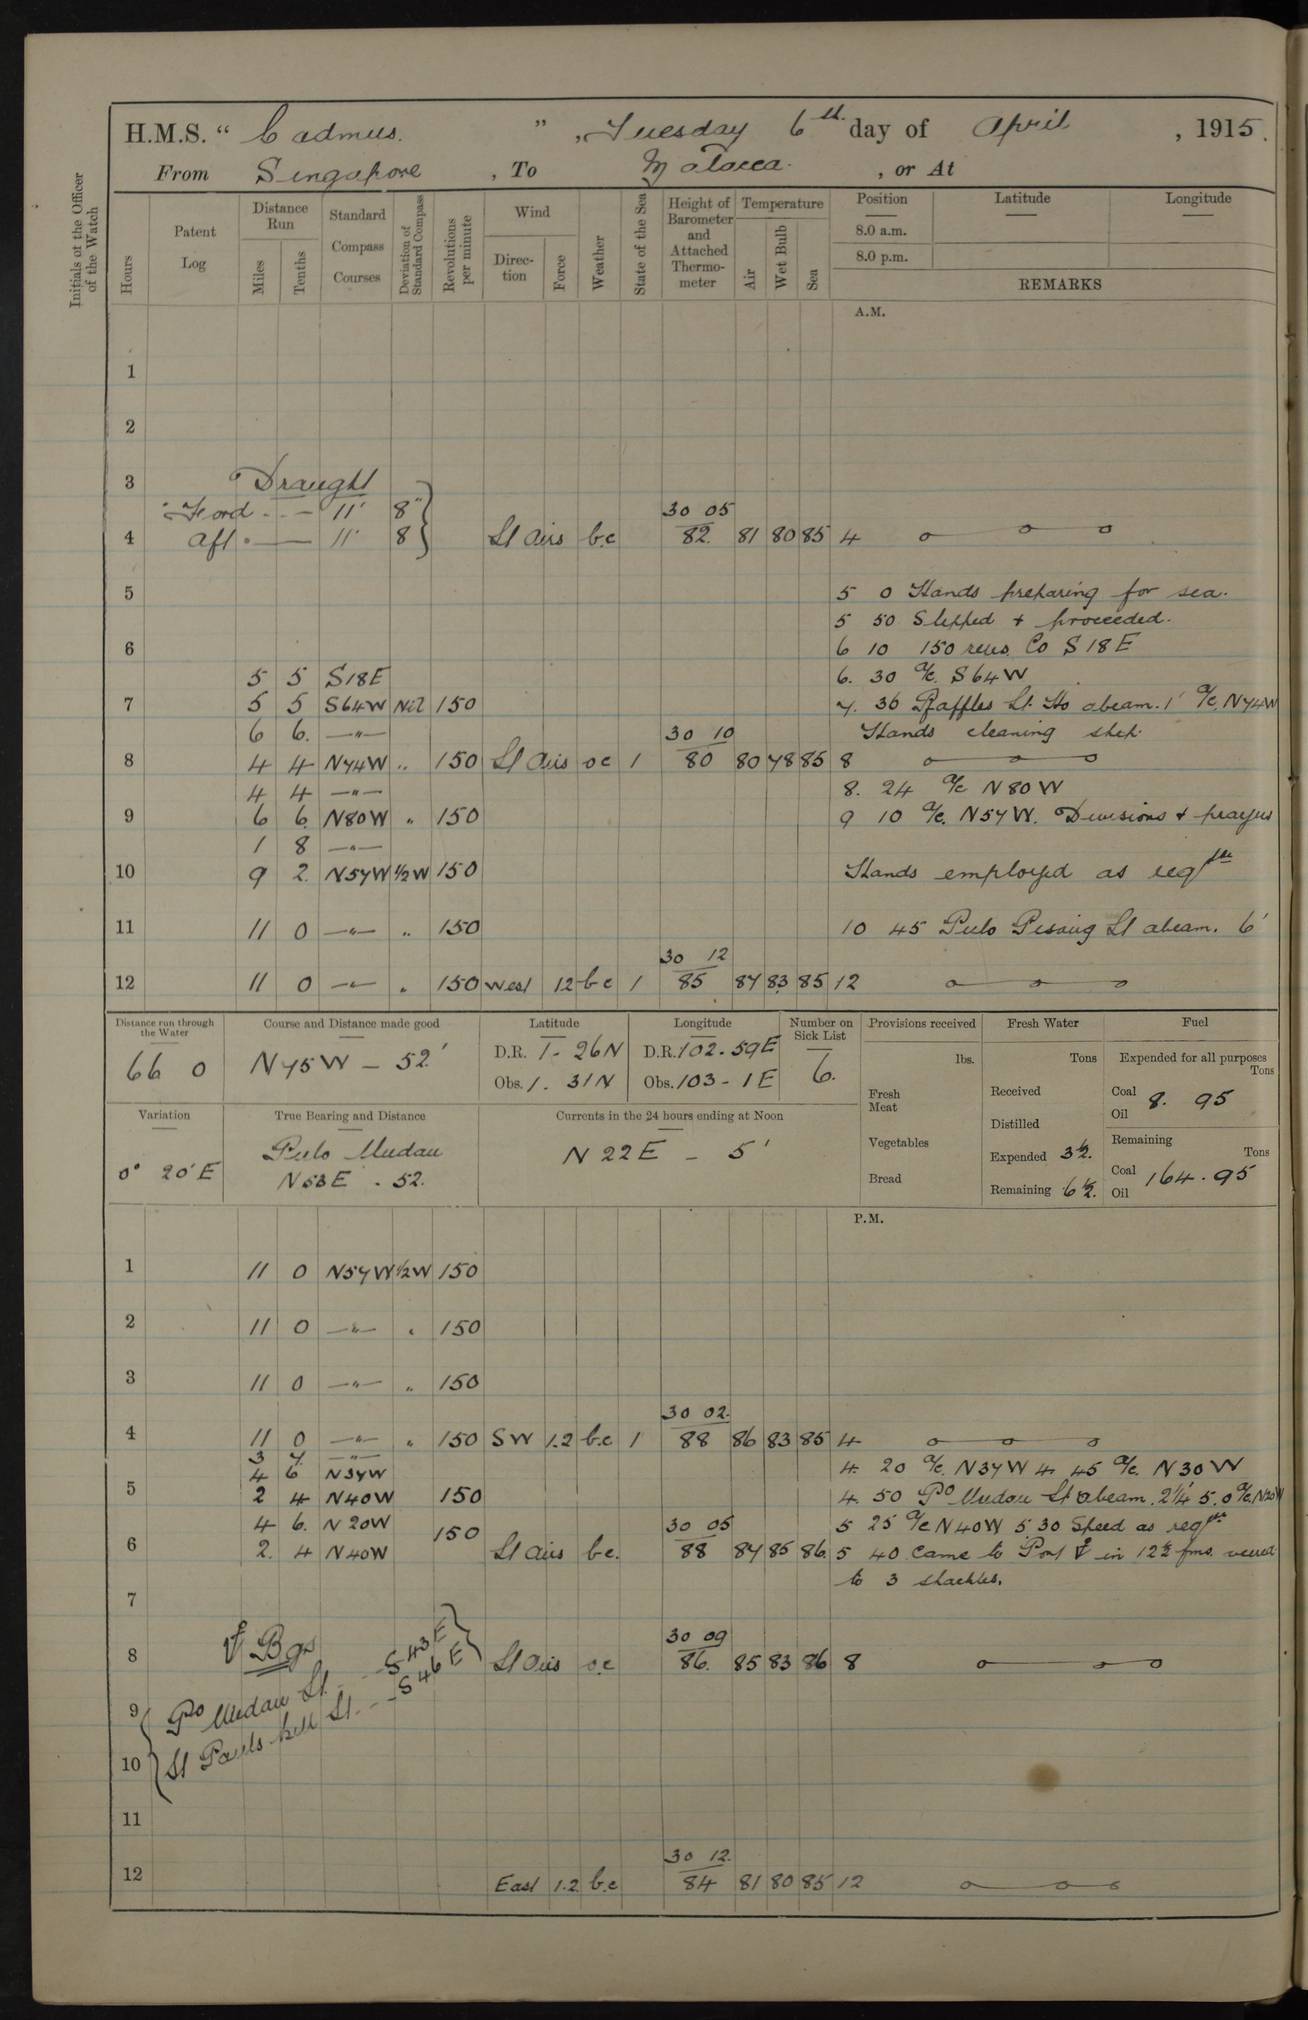 H.M.S. “ Cadmus. ” , Tuesday 6th day of April , 1915.
From Singapore , To Malacca. , or At
Initials of the Officer of the Watch
Hours
Patent Log
Distance Run
Miles
Tenths
Standard Compass Courses
Deviation of Standard Compass
Revolutions per minute
Wind
Direction
Force
Weather
State of the Sea
Height of Barometer and Attached Thermometer
Temperature
Air
Wet Bulb
Sea
Position
8.0 a.m.
8.0 p.m.
Latitude
Longitude
REMARKS
A.M.
1
2
3 Draught
Ford - - 11' 8" 30 05
4 Aft - 11' 8 Lt Airs b.c 82. 81 80 85 4
5 5 0 Hands preparing for sea.
5 50 Slipped + proceeded.
6 6 10 150 revs. Co S18E
5 5 S18E 6. 30 a/c. S64W
7 5 5 S64W Nil 150 7. 36 Raffles Lt. Ho abeam. 1' a/c. N74W
6 6. —"— 30 10 Hands cleaning ship.
8 4 4 N74W " 150 Lt Airs o c 1 80 80 78 85 8
4 4 —"— 8. 24 a/c N80W
9 6 6. N80W " 150 9 10 a/c. N57W. Divisions + prayers
1 8 —"—
10 9 2. N57W 1/2W 150 Hands employed as reqte
11 11 0 —"— " 150 10 45 Pulo Pisang Lt abeam. 6'
30 12
12 11 0 —"— " 150 West 12 b c 1 85 87 83 85 12
Distance run through the Water
66 0
Course and Distance made good
N75W — 52'
Latitude
D.R. 1. 26N
Obs. 1. 31N
Longitude
D.R. 102. 59E
Obs. 103 - 1E
Number on Sick List
6.
Provisions received
lbs.
Fresh Meat
Vegetables
Bread
Fresh Water
Tons
Received
Distilled
Expended 3½.
Remaining 6½.
Fuel
Expended for all purposes
Tons
Coal 8. 95
Oil
Remaining
Tons
Coal 164. 95
Oil
Variation
0° 20'E
True Bearing and Distance
Pulo Undan
N53E . 52.
Currents in the 24 hours ending at Noon
N 22 E — 5'
P.M.
1 11 0 N57W 1/2W 150
2 11 0 —"— " 150
3 11 0 —"— " 150
30 02.
4 11 0 —"— " 150 SW 1.2 b.c 1 88 86 83 85 4
3 7. —"—
4 6 N37W 4. 20 a/c. N37W 4. 45 a/c. N30W
5 2 4 N40W 150 4. 50 Po Undan Lt abeam. 2¼' 5. 0 a/c. N20W
4 6. N20W 150 30 05 5 25 a/c N40W 5 30 Speed as reqte
6 2. 4 N40W Lt Airs b.c. 88 87 85 86. 5 40 Came to Port ⚓ in 12½ fms. veered
to 3 shackles.
7
30 09
8 Lt Airs o.c 86. 85 83 86 8
⚓ Bgs
9 Po Undan Lt. - - S43E
10 St Pauls hill Lt. - - S46E
11
30 12.
12 East 1.2 b.c 84 81 80 85 12